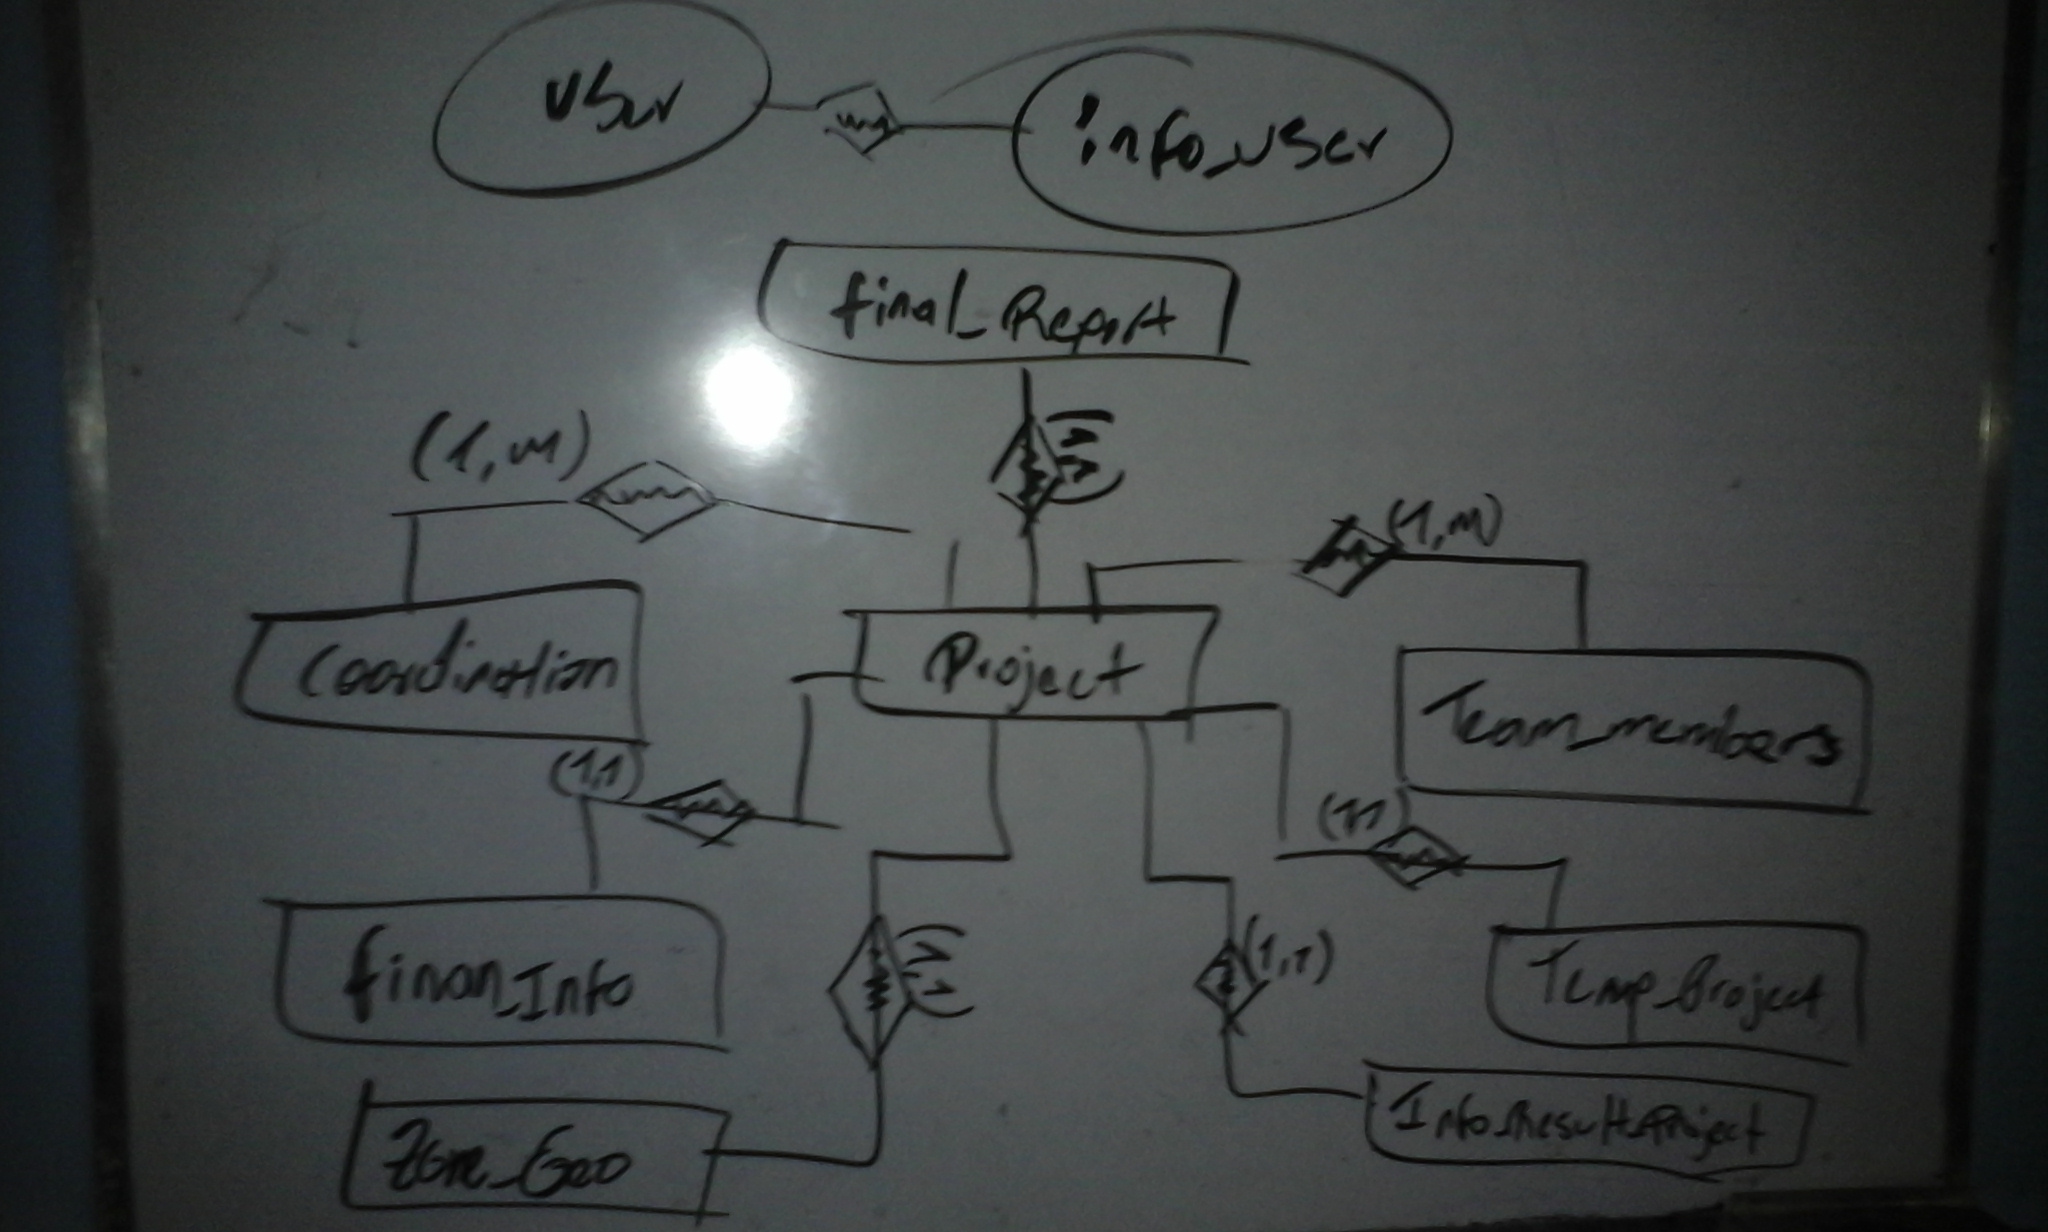 user
info_user
final_Report
(1,m)
(1,1)
(1,m)
Coordination
Project
Team_members
(1,1)
(1,1)
finan_Info
(1,1)
(1,1)
Temp_Project
Zone_Geo
Info_Result_Project